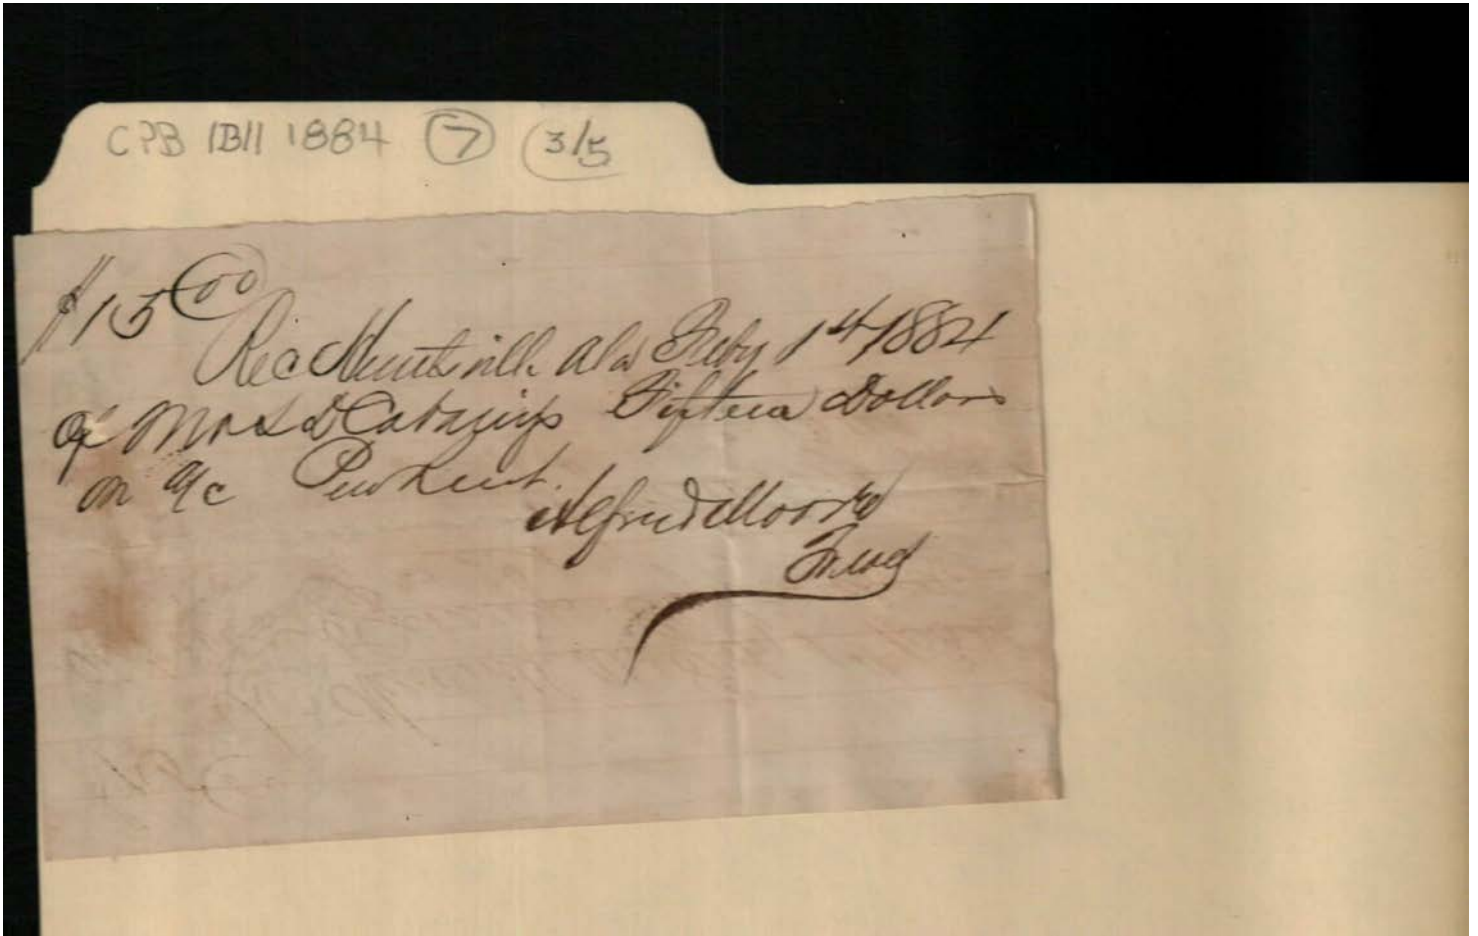 CPB IBII 1884 7 3/5
$15 00
Rec Huntsville Ala Feby 1st 1884
of Mrs S D Cabaniss Fifteen Dollars
on a/c Pew Rent.
Alfred Moore
Treas